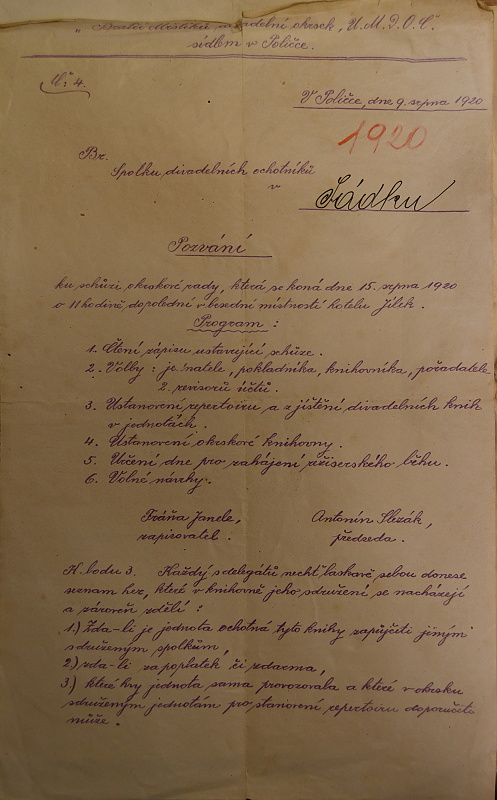 "Bratří Mrštíků" divadelní okrsek "Ú.M.D.O.Č."
sídlem v Poličce.
Č: 4.
V Poličce, dne 9. srpna 1920
1920
Br.
Spolku divadelních ochotníků
v
Sádku
Pozvání
ku schůzi okrskové rady, která se koná dne 15. srpna 1920
o 11 hodině dopolední v besední místnosti hotelu Jílek.
Program:
1. Čtení zápisu ustavující schůze.
2. Volby: jednatele, pokladníka, knihovníka, pořadatele
2. revisorů účtů.
3. Ustanovení repertoiru a zjištění divadelních knih
v jednotách.
4. Ustanovení okrskové knihovny.
5. Určení dne pro zahájení režiserského běhu.
6. Volné návrhy.
Fráňa Janele, Antonín Slezák,
zapisovatel. předseda.
K bodu 3. Každý s delegátů nechť laskavě sebou donese
seznam her, které v knihovně jeho sdružení se nacházejí
a zároveň sdělí:
1.) Zda-li je jednota ochotná tyto knihy zapůjčiti jiným
sdruženým spolkům,
2) zda-li za poplatek či zdarma,
3.) které hry jednota sama provozovala a které v okrsku
sdruženým jednotám pro stanovení repertoiru doporučiti
může.